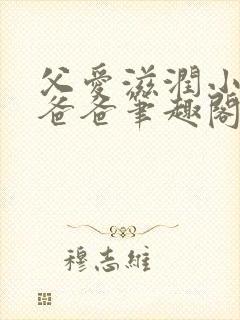 父愛滋潤小
爸爸筆趣閣
穆志維